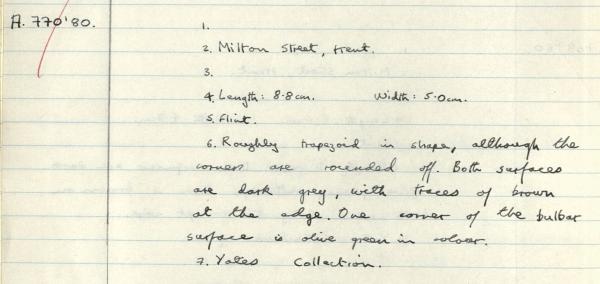 A. 770'80.
1.
2. Milton Street, Kent.
3.
4. Length: 8.8cm. Width: 5.0cm.
5. Flint.
6. Roughly trapezoid in shape, although the
corners are rounded off. Both surfaces
are dark grey, with traces of brown
at the edge. One corner of the bulbar
surface is olive green in colour.
7. Yates Collection.